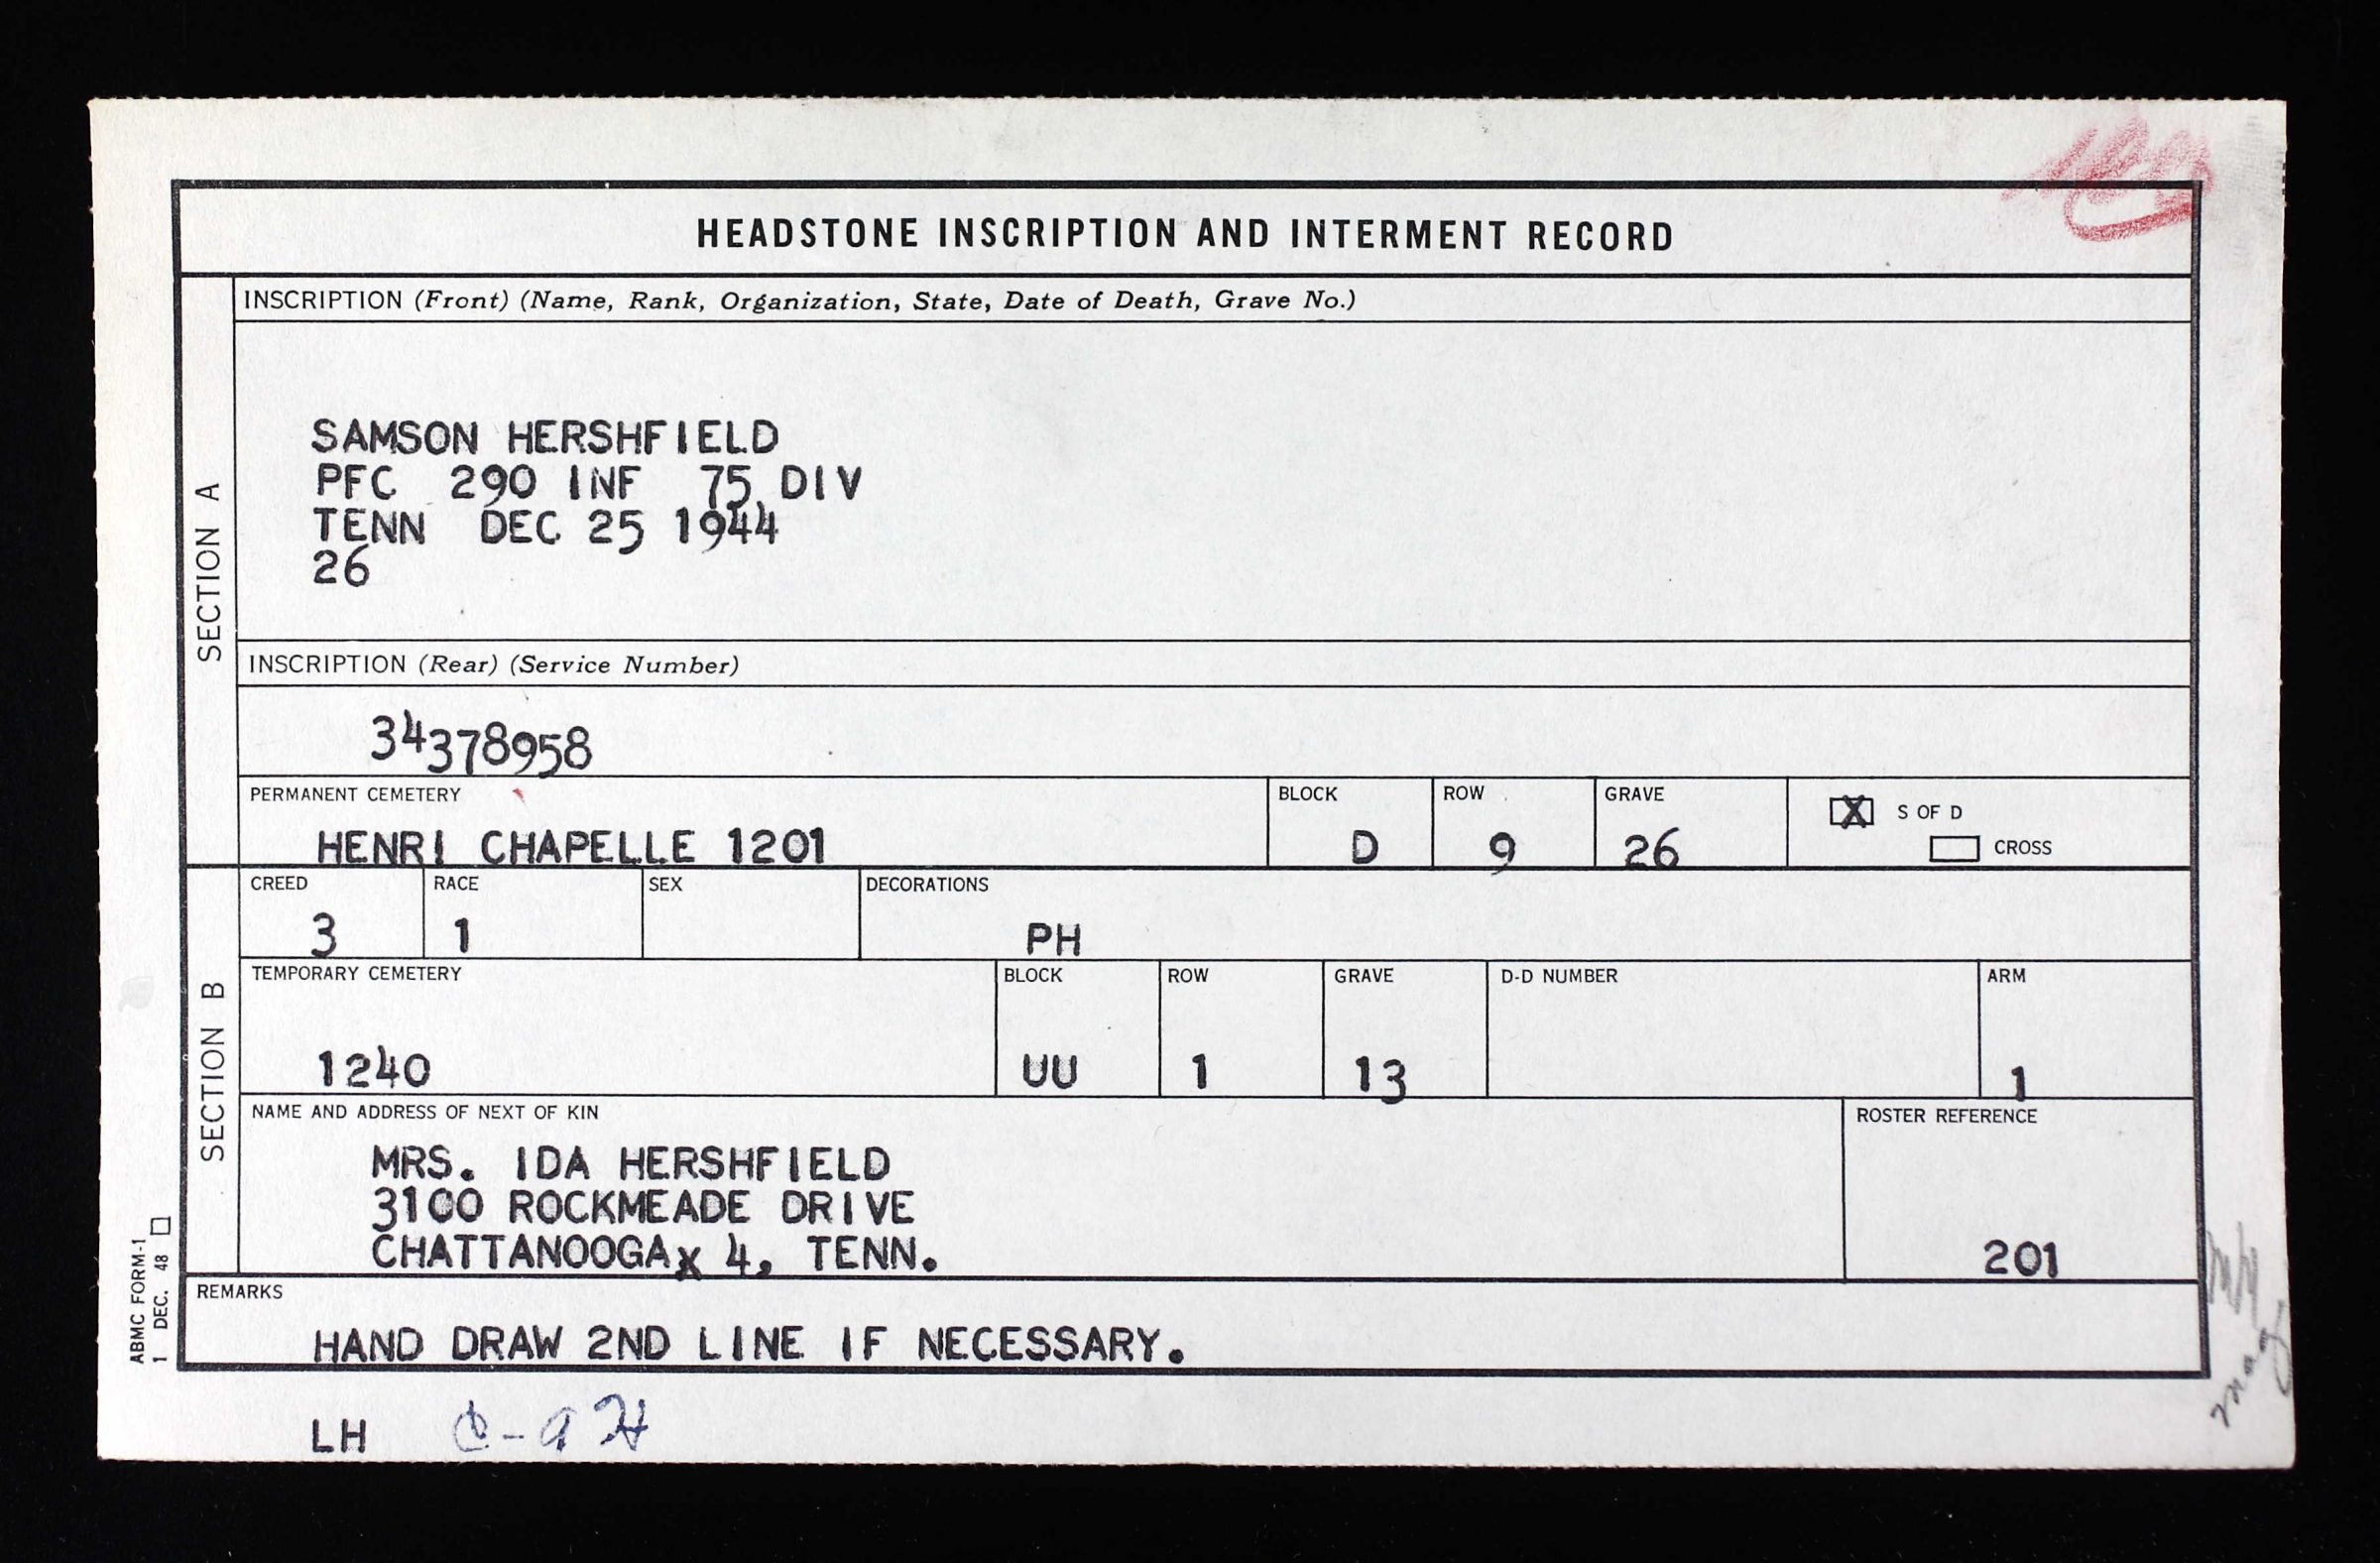 HEADSTONE INSCRIPTION AND INTERMENT RECORD
SECTION A
INSCRIPTION (Front) (Name, Rank, Organization, State, Date of Death, Grave No.)
SAMSON HERSHFIELD
PFC 290 INF 75 DIV
TENN DEC 25 1944
26
INSCRIPTION (Rear) (Service Number)
34378958
PERMANENT CEMETERY BLOCK ROW GRAVE
X S OF D
HENRI CHAPELLE 1201 D 9 26
CROSS
SECTION B
CREED RACE SEX DECORATIONS
3 1 PH
TEMPORARY CEMETERY BLOCK ROW GRAVE D-D NUMBER ARM
1240 UU 1 13 1
NAME AND ADDRESS OF NEXT OF KIN ROSTER REFERENCE
MRS. IDA HERSHFIELD
3100 ROCKMEADE DRIVE
CHATTANOOGAx 4, TENN.
201
REMARKS
HAND DRAW 2ND LINE IF NECESSARY.
ABMC FORM-1
1 DEC. 48
LH